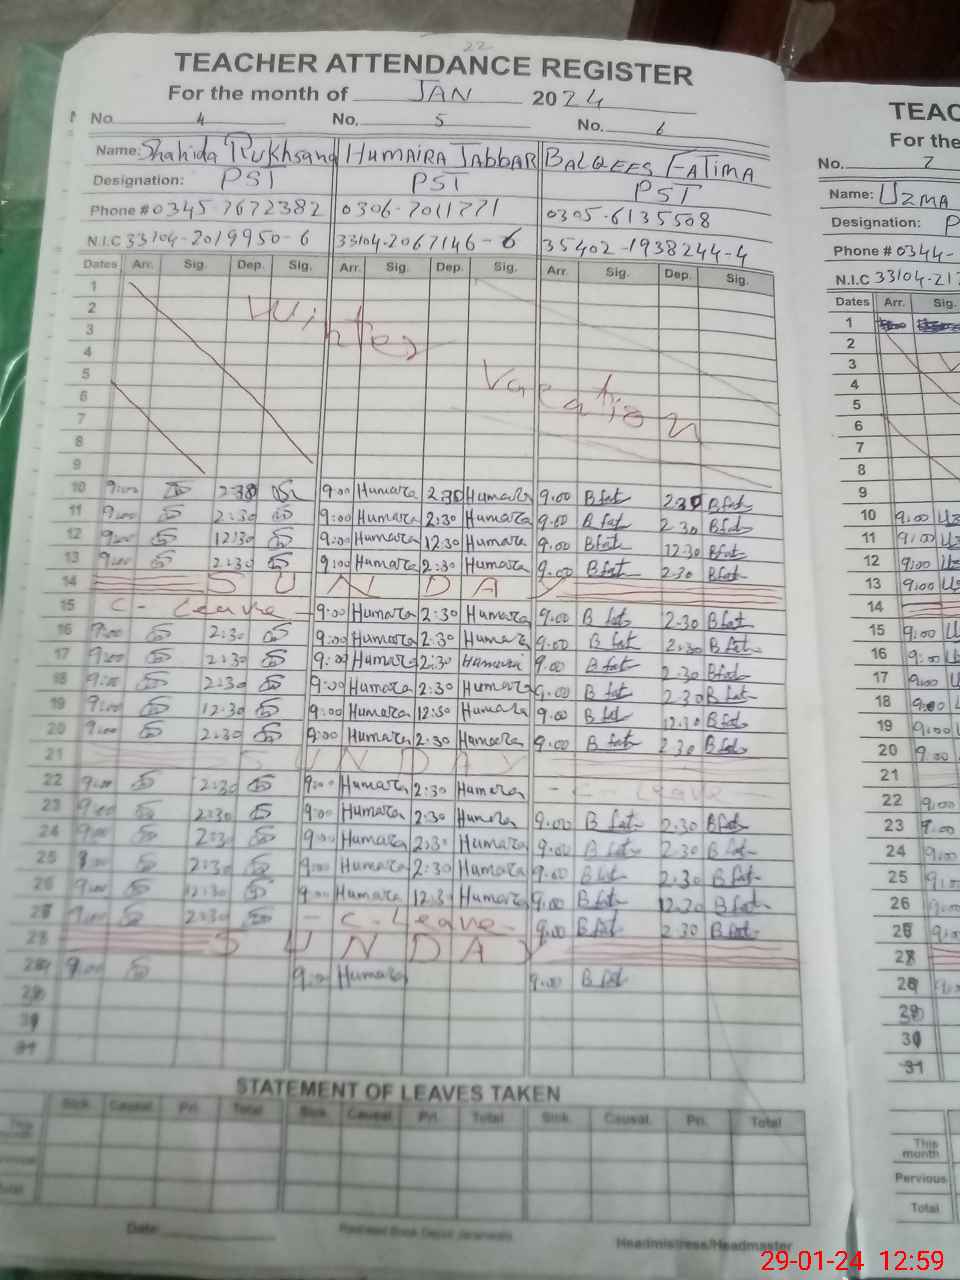 22
TEACHER ATTENDANCE REGISTER
For the month of JAN 2024
No. 4 No. 5 No. 6
Name: Shahida Rukhsana HUMAIRA JABBAR BALQEES FATIMA
Designation: PST PST PST
Phone # 0345 7672382 0306-7011771 0305-6135508
N.I.C 33104-2019950-6 33104-2067146-6 35402-1938244-4
Dates Arr. Sig. Dep. Sig. Arr. Sig. Dep. Sig. Arr. Sig. Dep. Sig.
1
2 Winter
3
4
5 Vacation
6
7
8
9
10 9:00 2:30 9:00 Humara 2:30 Humara 9.00 B fat 2.30 B fat
11 9:00 2:30 9:00 Humara 2:30 Humara 9.00 B fat 2.30 B fat
12 9:00 12:30 9:00 Humara 12:30 Humara 9.00 B fat 12.30 B fat
13 9:00 2:30 9:00 Humara 2:30 Humara 9.00 B fat 2.30 B fat
14 SUNDAY
15 C-Leave 9:00 Humara 2:30 Humara 9.00 B fat 2.30 B fat
16 9:00 2:30 9:00 Humara 2:30 Humara 9.00 B fat 2.30 B fat
17 9:00 2:30 9:00 Humara 2:30 9.00 B fat 2.30 B fat
18 9:00 2:30 9:00 Humara 2:30 Humara 9.00 B fat 2.30 B fat
19 9:00 12:30 9:00 Humara 12:30 Humara 9.00 B fat 12.30 B fat
20 9:00 2:30 9:00 Humara 2:30 Humara 9.00 B fat 2.30 B fat
21 SUNDAY
22 9:00 2:30 9:00 Humara 2:30 Humara - C-Leave -
23 9:00 2:30 9:00 Humara 2:30 Humara 9.00 B fat 2.30 B fat
24 9:00 2:30 9:00 Humara 2:30 Humara 9.00 B fat 2.30 B fat
25 2:30 9:00 Humara 2:30 Humara 9.00 B fat 2.30 B fat
26 9:00 12:30 9:00 Humara 12:30 Humara 9.00 B fat 12.30 B fat
27 9:00 2:30 - C-Leave - 9.00 B fat 2.30 B fat
28 SUNDAY
29 9:00 9:00 Humara 9.00 B fat
31
STATEMENT OF LEAVES TAKEN
Sick. Causal. Pri. Total Sick. Causal. Pri. Total Sick. Causal. Pri. Total
This month
Total
Date:
Headmistress/Headmaster
TEAC
For the
No. 7
Name: UZMA
Designation: P
Phone # 0344-
N.I.C 33104-21
Dates Arr. Sig.
1
2
3
4
5
6
7
8
9
10 9:00
11 9:00
12 9:00
13 9:00
14
15 9:00
16 9:00
17 9:00
18 9:00
19 9:00
20 9:00
21
22 9:00
23 9:00
24 9:00
25 9:00
26 9:00
30
31
This month
Pervious
Total
29-01-24 12:59